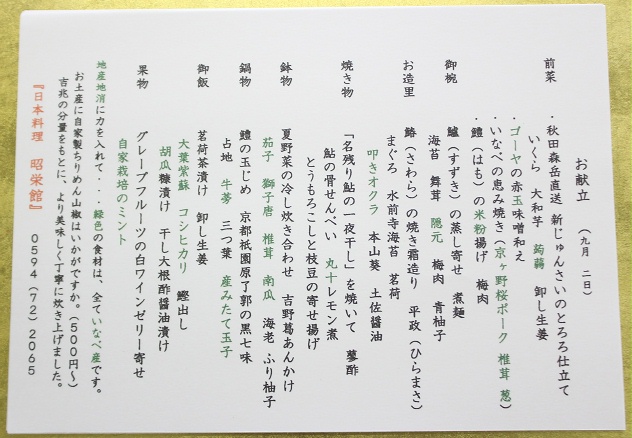 お献立 (九月 二日)
前菜 ・秋田森岳直送 新じゅんさいのとろろ仕立て
いくら 大和芋 蒟蒻 卸し生姜
・ゴーヤの赤玉味噌和え
・いなべの恵み焼き(京ヶ野桜ポーク 椎茸 葱)
・鱧(はも)の米粉揚げ 梅肉
御椀 鱸(すずき)の蒸し寄せ 煮麺
海苔 舞茸 隠元 梅肉 青柚子
お造里 鰆(さわら)の焼き霜造り 平政(ひらまさ)
まぐろ 水前寺海苔 茗荷
叩きオクラ 本山葵 土佐醤油
焼き物 「名残り鮎の一夜干し」を焼いて 蓼酢
鮎の骨せんべい 丸十レモン煮
とうもろこしと枝豆の寄せ揚げ
鉢物 夏野菜の冷し炊き合わせ 吉野葛あんかけ
茄子 獅子唐 椎茸 南瓜 海老 ふり柚子
鍋物 鱧の玉じめ 京都祇園原了郭の黒七味
占地 牛蒡 三つ葉 産みたて玉子
御飯 茗荷茶漬け 卸し生姜
大葉紫蘇 コシヒカリ 鰹出し
胡瓜糠漬け 干し大根酢醤油漬け
果物 グレープフルーツの白ワインゼリー寄せ
自家栽培のミント
地産地消に力を入れて・・・緑色の食材は、全ていなべ産です。
お土産に自家製ちりめん山椒はいかがですか。(500円~)
吉兆の分量をもとに、より美味しく丁寧に炊き上げました。
『日本料理 昭栄館』 0594(72)2065